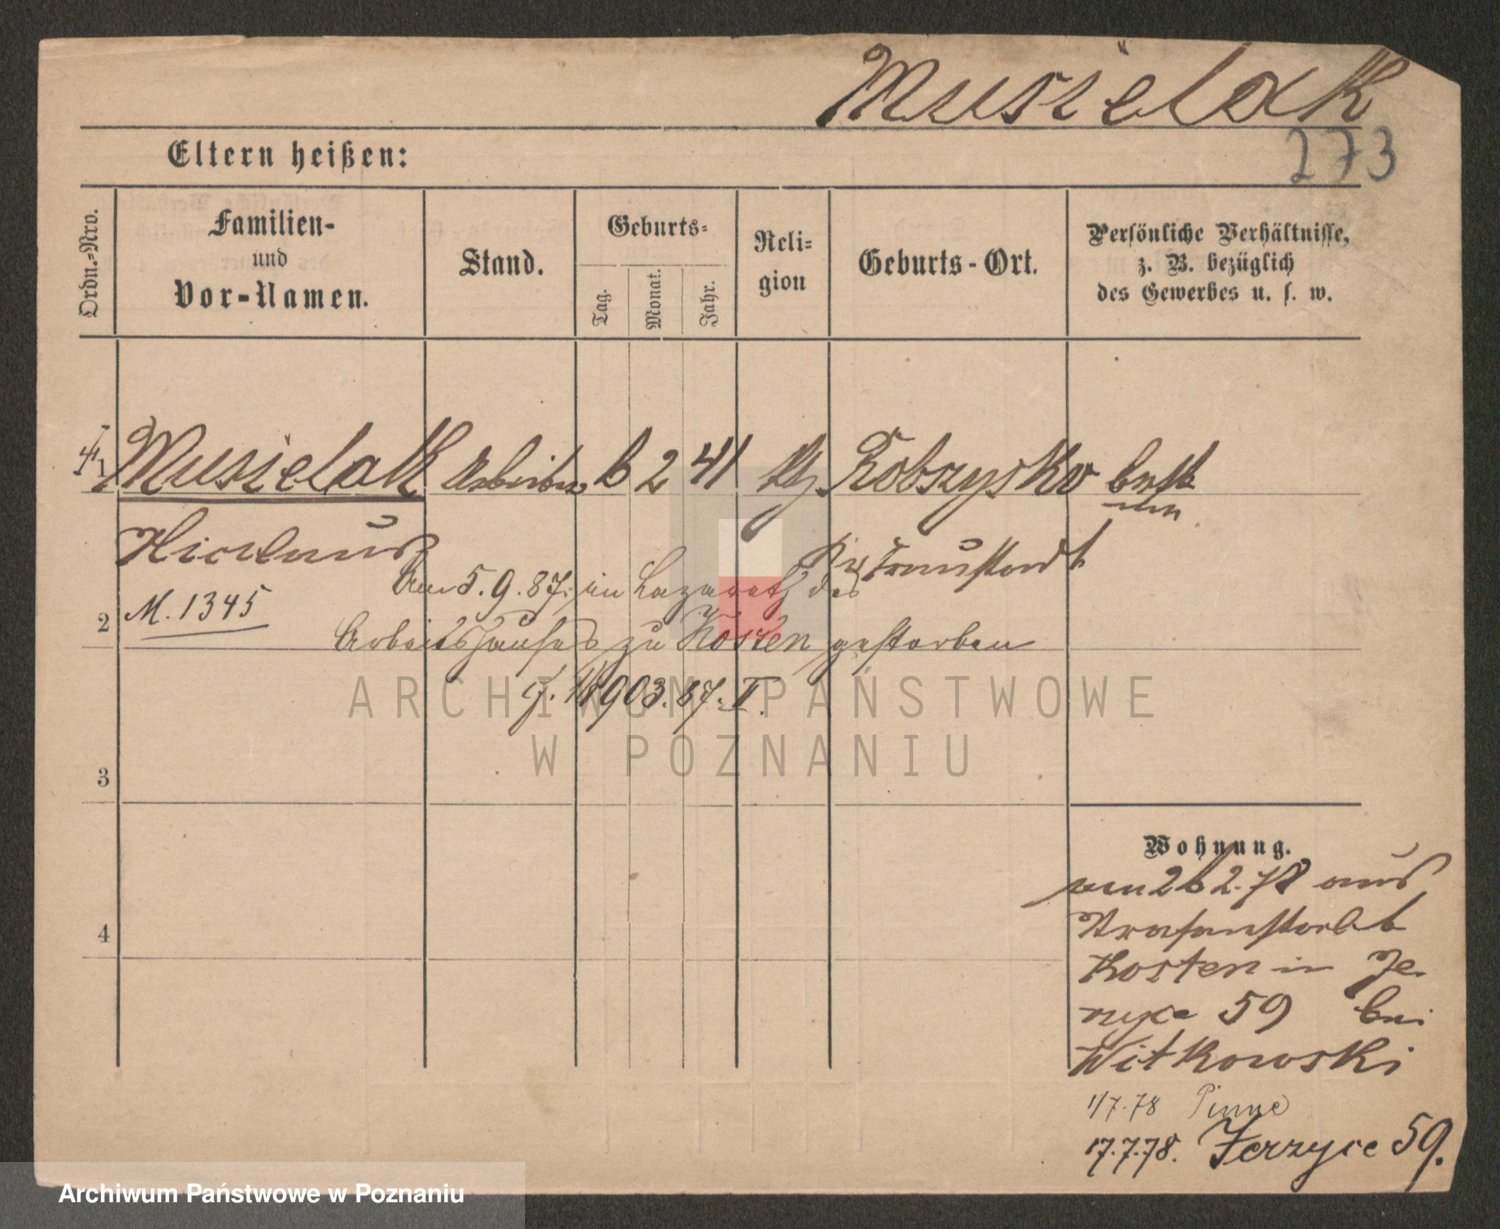 Musielak
273
Eltern heißen:
Ordn.-Nro.
Familien-
und
Vor-Namen.
Stand.
Geburts-
Tag.
Monat.
Jahr.
Reli-
gion
Geburts-Ort.
Persönliche Verhältnisse,
z. B. bezüglich
des Gewerbes u. s. w.
1 Musielak Arbeiter 6 2 41 Robszysko
Kr Fraustadt
M. 1345
am 5.9.87. im Lazareth des
2 Arbeitshauses zu Kosten gestorben
J. 903.87. II.
ARCHIWUM PAŃSTWOWE
W POZNANIU
3
Wohnung.
26 2.78 aus
4
Kosten in Je-
rzyce 59 bei
Witkowski
1/7.78 Pinne
17.7.78. Jerzyce 59.
Archiwum Państwowe w Poznaniu